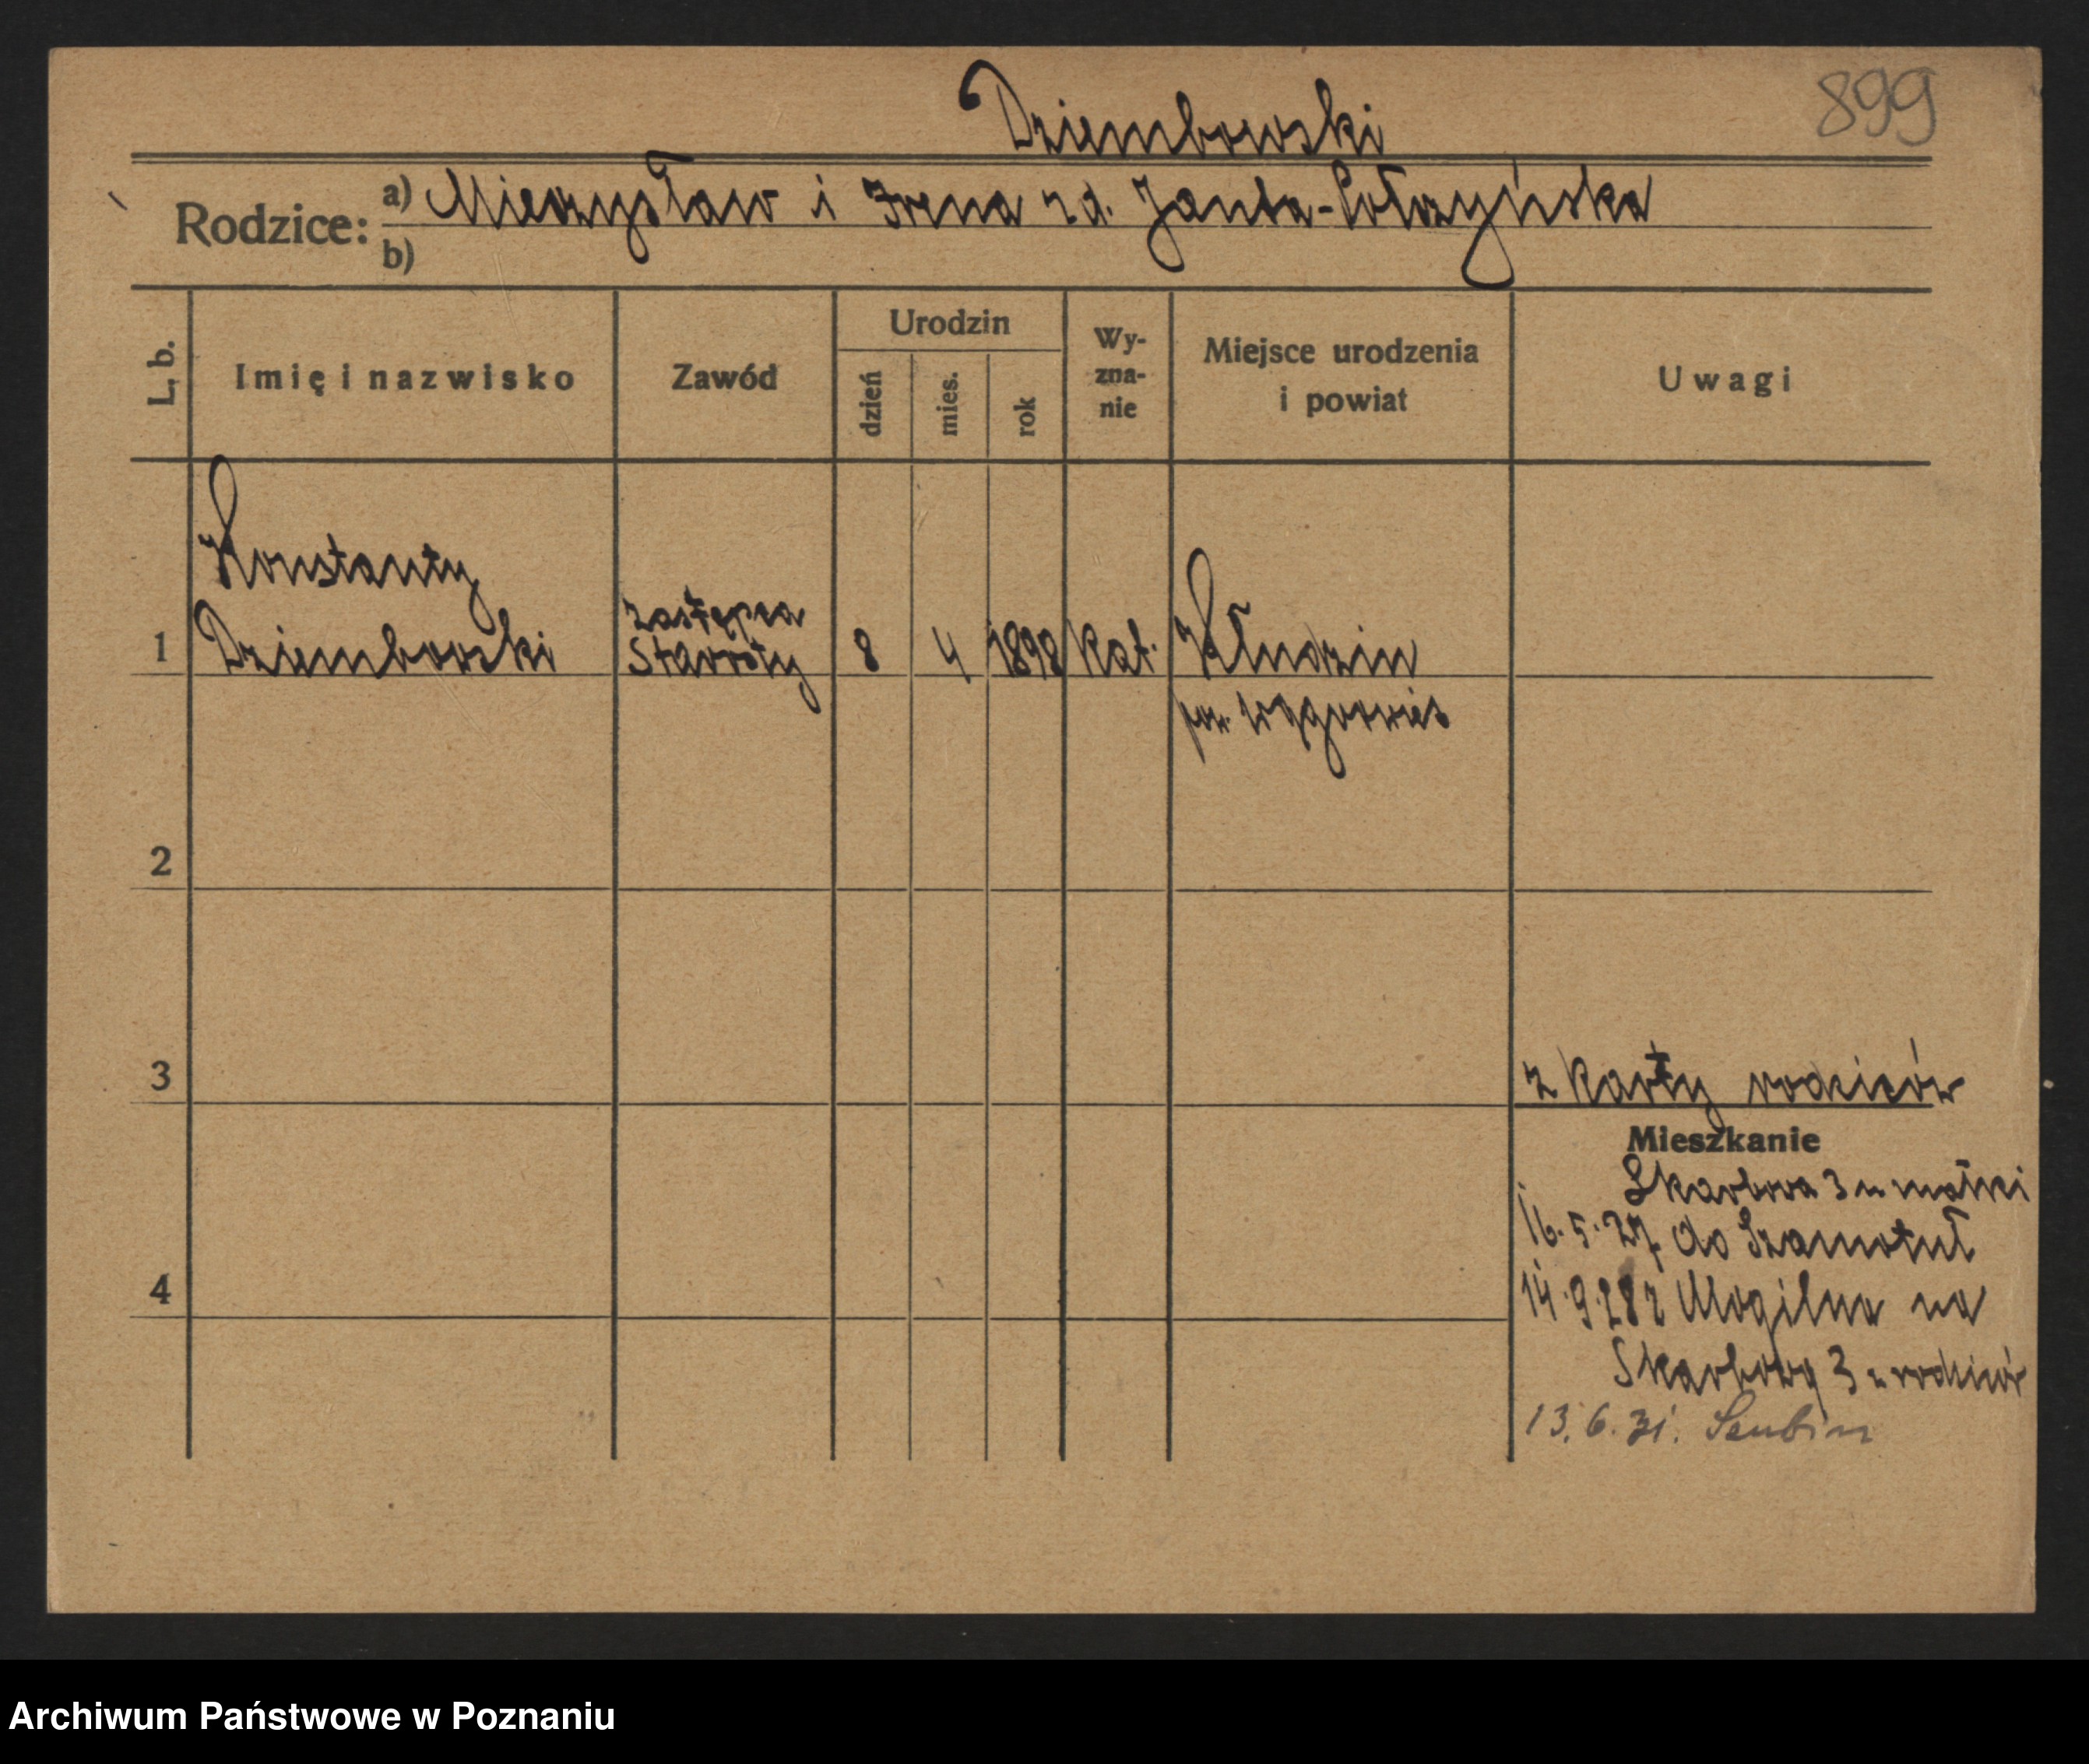 Dziembowski
899
Rodzice: a) Mieczysław i Irena zd. Janta-Połczyńska
b)
L. b.
Imię i nazwisko
Zawód
Urodzin
dzień
mies.
rok
Wy-
zna-
nie
Miejsce urodzenia
i powiat
Uwagi
Konstanty
1 Dziembowski
zastępca
Starosty
8 4 1898 Kat. Kłudzin
pow. Wągrowiec
2
3
z karty rodziców
Mieszkanie
Skarbowa 3 u matki
16.5.27 do Szamotuł
14.9.28 z Mogilna na
4
Skarbową 3 u rodziców
13.6.31. Szubin
Archiwum Państwowe w Poznaniu